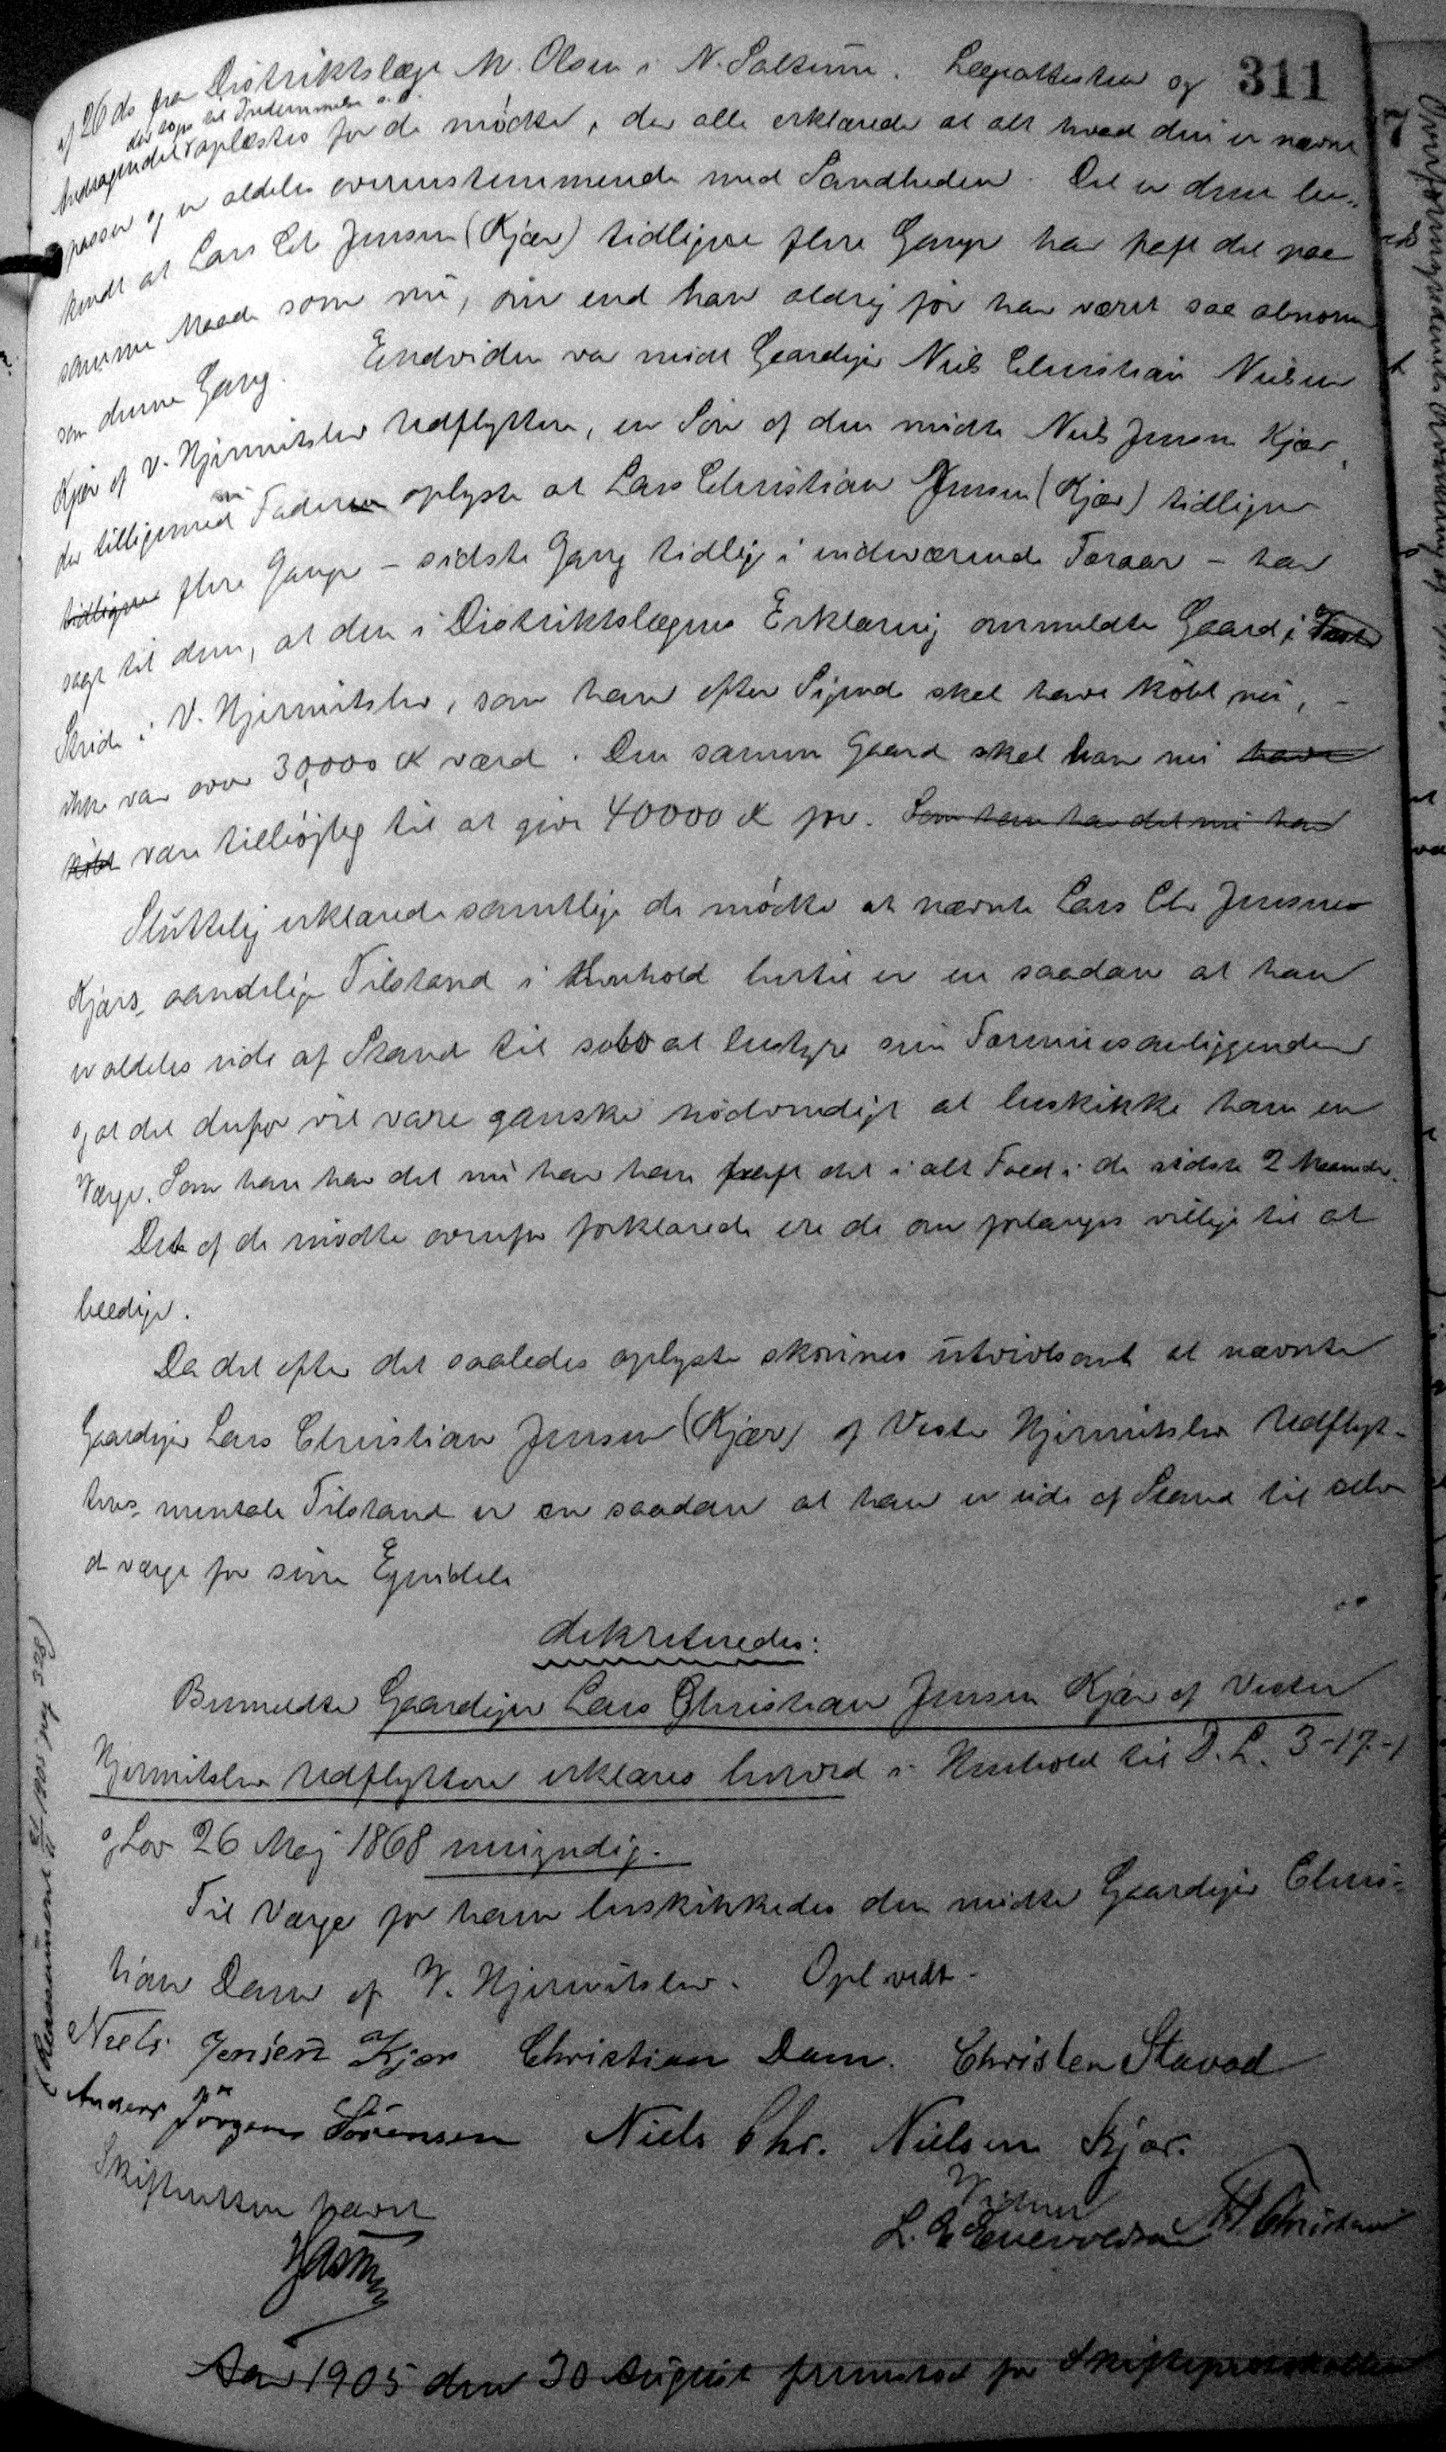 311
af 26 ds fra Distriktslæge M. Olsen i N. Saltum. Lægeattesten og
der toges til Indlemmelse o. s.
Andragendet oplæstes for de mødte, der alle erklærede at alt hvad deri er nævnt
passer og er aldeles overensstemmende med Sandheden. Det er dem be-
kendt at Lars Chr Jensen (Kjær) tidligere flere Gange har haft det paa
samme Maade som nu, om end han aldrig før har været saa abnorm
som denne Gang. Endvidere var mødt Gaardejer Niels Christian Nielsen
Kjær af V. Hjermitslev Udflyttere, en Søn af den mødte Niels Jensen Kjær,
der tilligemed sin Fader oplyste at Lars Christian Jensen (Kjær) tidligere
tidligere flere Gange - sidste Gang tidlig i indeværende Foraar - har
sagt til dem, at den i Distriktslægens Erklæring ommeldte Gaard i
Skide i V. Hjermitslev, som han efter Sigende skal have købt nu, -
ikke var over 30,000 K værd. Den samme Gaard skal han nu have
købt være tilbøjelig til at give 40000 K for. Som han har det nu har
Sluttelig erklærede samtlige de mødte at nævnte Lars Chr Jensen
Kjærs aandelige Tilstand i Henhold hertil er en saadan at han
er aldeles ude af Stand til selv at bestyre sine Formuesanliggender
og at det derfor vil være ganske nødvendigt at beskikke ham en
Værge. Som han har det nu har han haft det i alt Fald i de sidste 2 Maaneder.
Det af de mødte ovenfor forklarede ere de om forlanges villige til at
beedige.
Da det efter det saaledes oplyste skønnes utvivlsomt at nævnte
Gaardejer Lars Christian Jensen (Kjær) af Vester Hjermitslev Udflyt-
teres mentale Tilstand er en saadan at han er ude af Stand til selv
at værge for sine Ejendele
dekreteredes:
Bemeldte Gaardejer Lars Christian Jensen Kjær af Vester
Hjermitslev Udflyttere erklæres herved i Henhold til D. L. 3-17-1
og Lov 26 Maj 1868 umyndig.
Til Værge for ham beskikkedes den mødte Gaardejer Chris-
tian Dam af V. Hjermitslev. Opl vedt.
Niels Jensen Kjær Christian Dam. Christen Stavad
Anders Jørgen Sørensen Niels Chr. Nielsen Kjær.
Skifteretten hævet
Vidner
L. E Enevoldsen Christensen
Aar 1905 den 30 August fremstod for Skifteprotokollen
(Reassumeret 21/11 1905 pag 328)